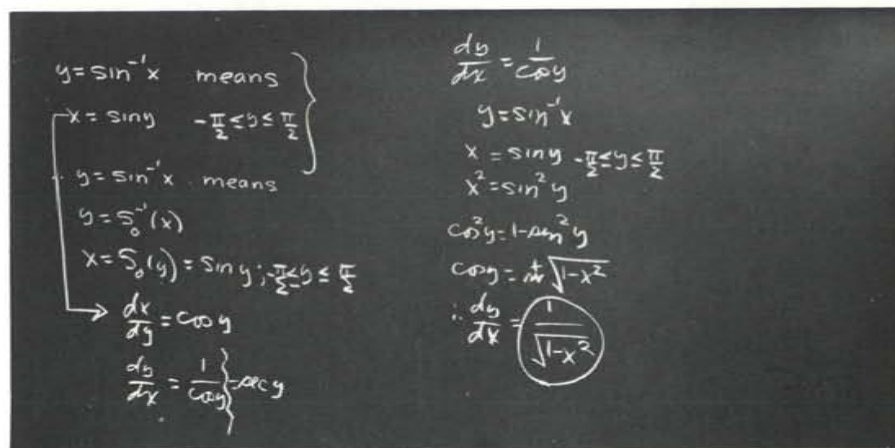 y = sin⁻¹x means
x = sin y -π/2 ≤ y ≤ π/2
∴ y = sin⁻¹x means
y = S₀⁻¹(x)
x = S₀(y) = sin y ; -π/2 ≤ y ≤ π/2
dx/dy = cos y
dy/dx = 1/cos y } = sec y
dy/dx = 1/cos y
y = sin⁻¹x
x = sin y -π/2 ≤ y ≤ π/2
x² = sin²y
cos²y = 1 - sin²y
cos y = + √(1-x²)
∴ dy/dx = 1/√(1-x²)